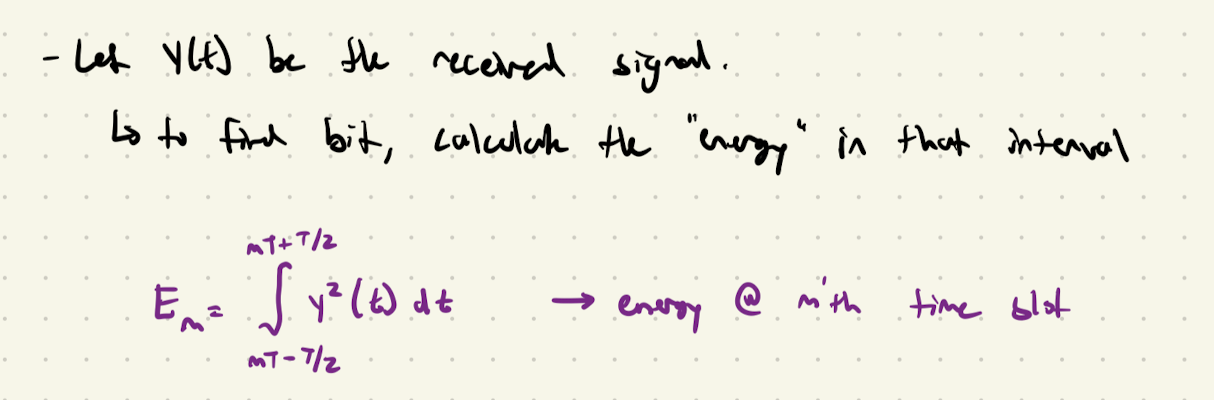 - Let y(t) be the received signal.
↳ to find bit, calculate the "energy" in that interval
E_m = ∫_{mT-T/2}^{mT+T/2} y²(t) dt → energy @ m'th time slot